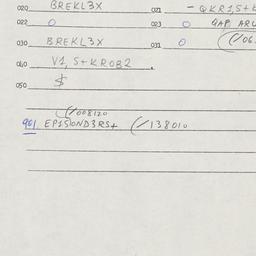 020 BREKL3X 021 - QKR1,S+
022 0 023 0 GAP ARU
030 BREKL3X 031 0 (/06.
040 V1, S+KROB2 .
050 $
(/008120
901 EP1SIOND3RS+ (/138010